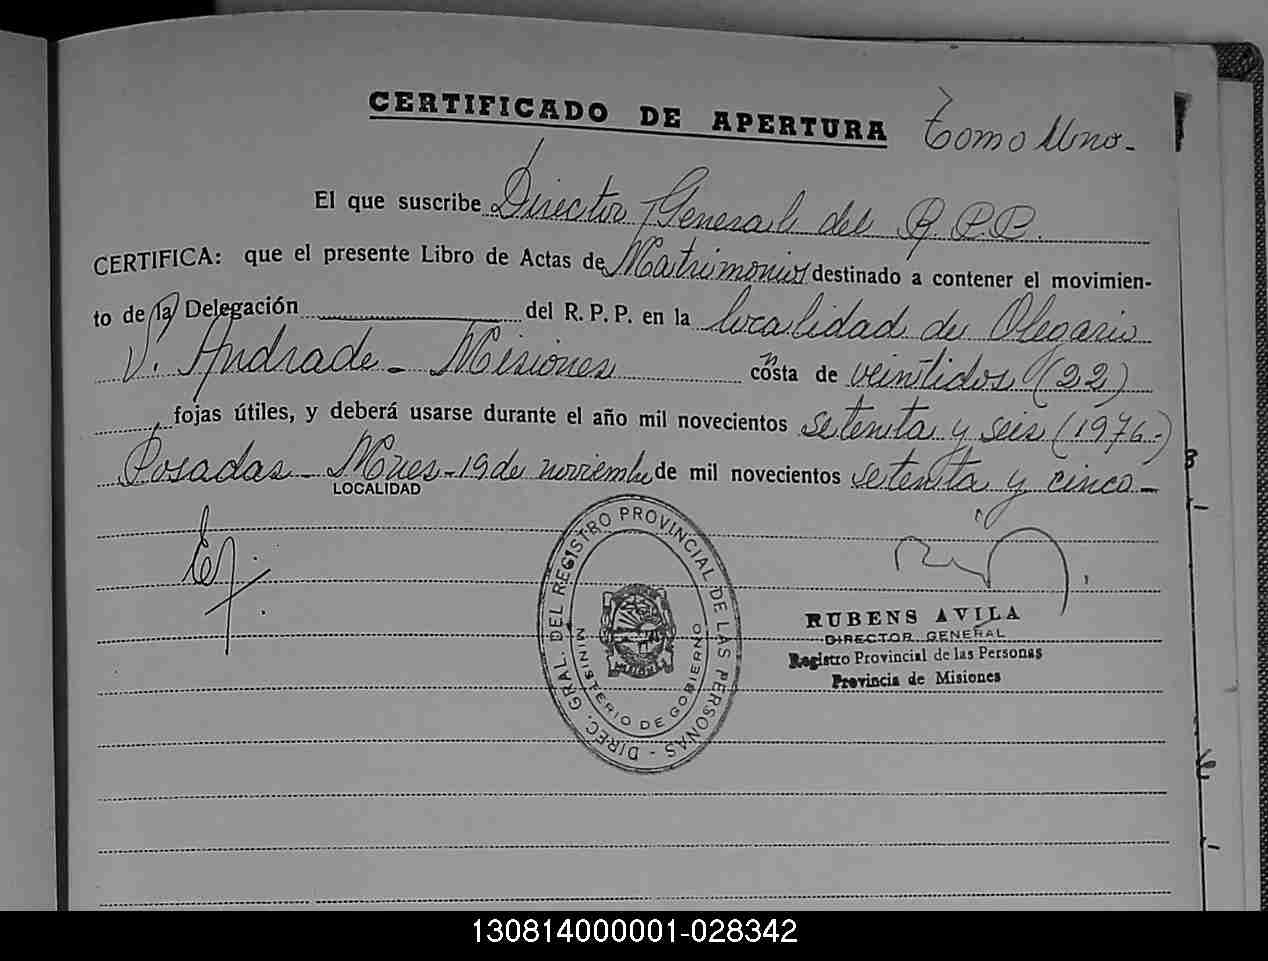 CERTIFICADO DE APERTURA Tomo Uno.-
El que suscribe Director General del R.P.P.
CERTIFICA: que el presente Libro de Actas de Matrimonios destinado a contener el movimien-
to de la Delegación del R. P. P. en la localidad de Olegario
V. Andrade - Misiones consta de veintidos (22)
fojas útiles, y deberá usarse durante el año mil novecientos setenta y seis (1976.-)
Posadas - Mnes - 19 de noviembre de mil novecientos setenta y cinco -
LOCALIDAD
DIREC. GRAL. DEL REGISTRO PROVINCIAL DE LAS PERSONAS -
MINISTERIO DE GOBIERNO
RUBENS AVILA
DIRECTOR GENERAL
Registro Provincial de las Personas
Provincia de Misiones
130814000001-028342